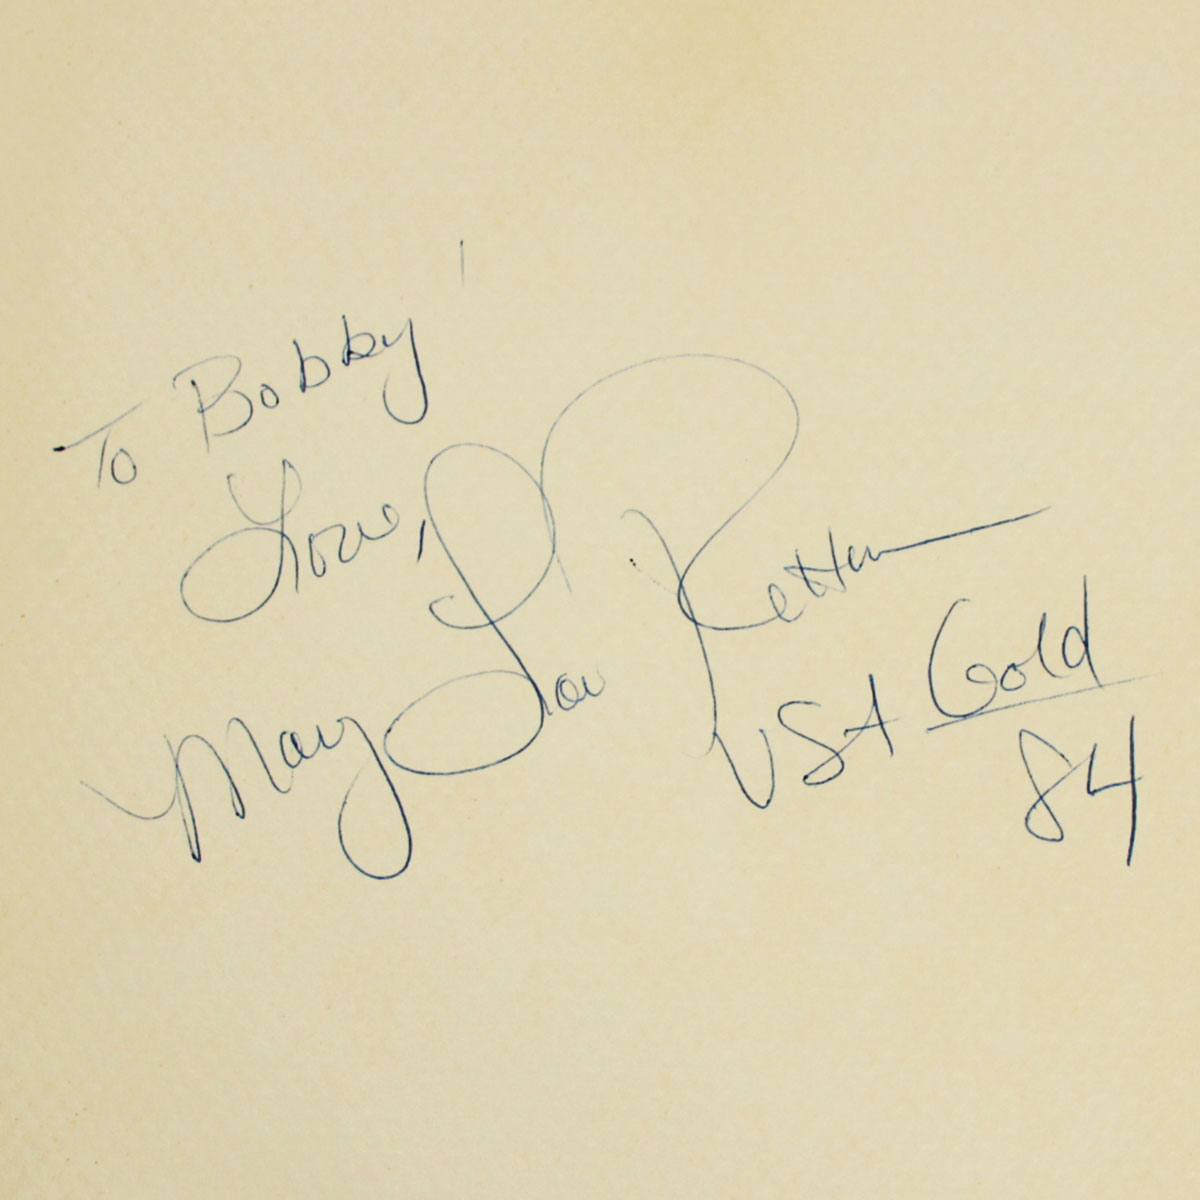 To Bobby
Love,
Mary Lou Retton
USA Gold
84